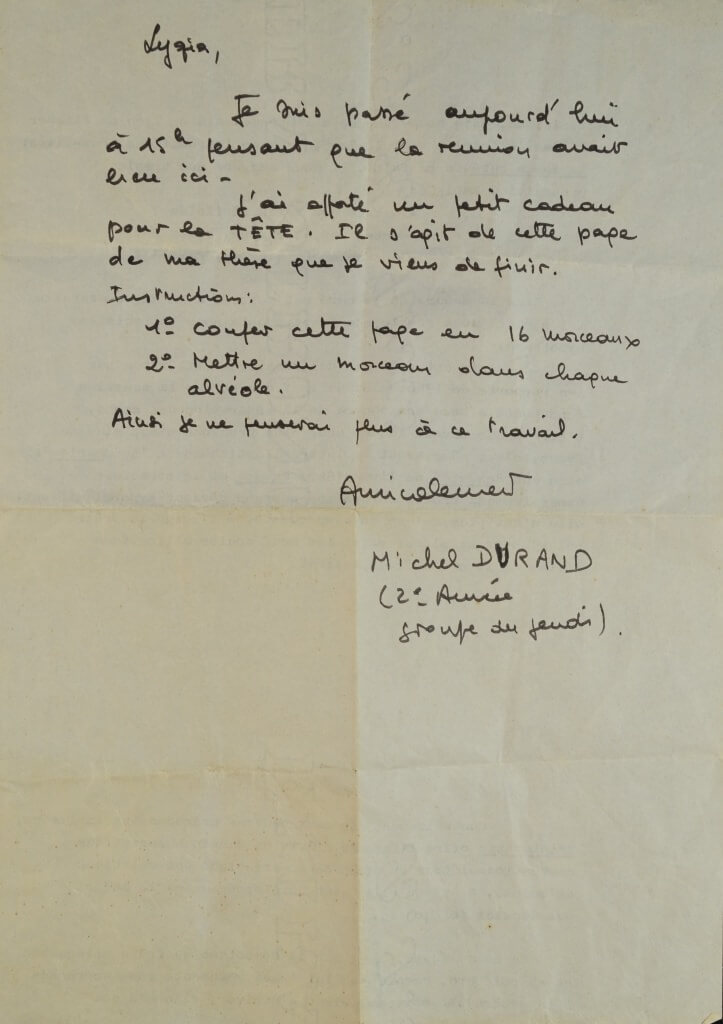 Lygia,
Je suis passé aujourd'hui
à 15h pensant que la reunion avait
lieu ici -
J'ai apporté un petit cadeau
pour la TÊTE. Il s'agit de cette page
de ma thèse que je viens de finir.
Instructions:
1º couper cette page en 16 morceaux
2º- Mettre un morceau dans chaque
alvéole.
Ainsi je ne penserai plus à ce travail.
Amicalement
Michel DURAND
(2e Année
groupe du jeudi).